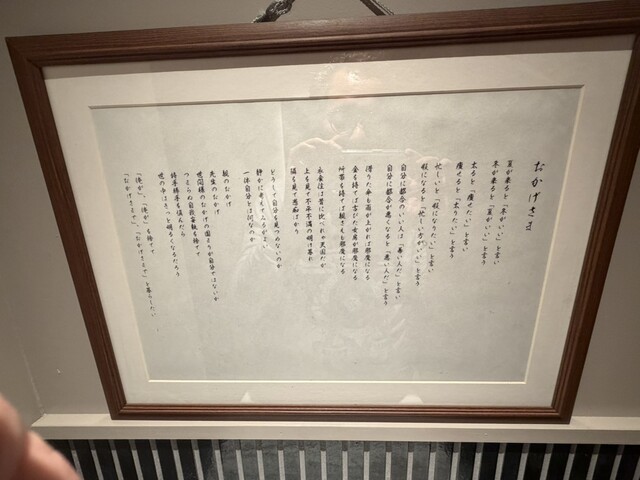 おかげさま
夏が来ると「冬がいい」と言う
冬が来ると「夏がいい」と言う
太ると「痩せたい」と言い
痩せると「太りたい」と言う
忙しいと「暇になりたい」と言い
暇になると「忙しい方がいい」と言う
自分に都合のいい人は「善い人だ」と言い
自分に都合が悪くなると「悪い人だ」と言う
借りた傘も雨が上がれば邪魔になる
金を持てば古びた女房が邪魔になる
所帯を持てば親さえも邪魔になる
衣食住は昔に比べりゃ天国だが
上を見て不平不満の明け暮れ
隣を見て愚痴ばかり
どうして自分を見つめないのか
静かに考えてみるがよい
一体自分とは何なのか
親のおかげ
先生のおかげ
世間様のおかげの固まりが自分ではないか
つまらぬ自我妄執を捨てて
得手勝手を慎んだら
世の中はきっと明るくなるだろう
「俺が」、「俺が」を捨てて
「おかげさまで」、「おかげさまで」と暮らしたい